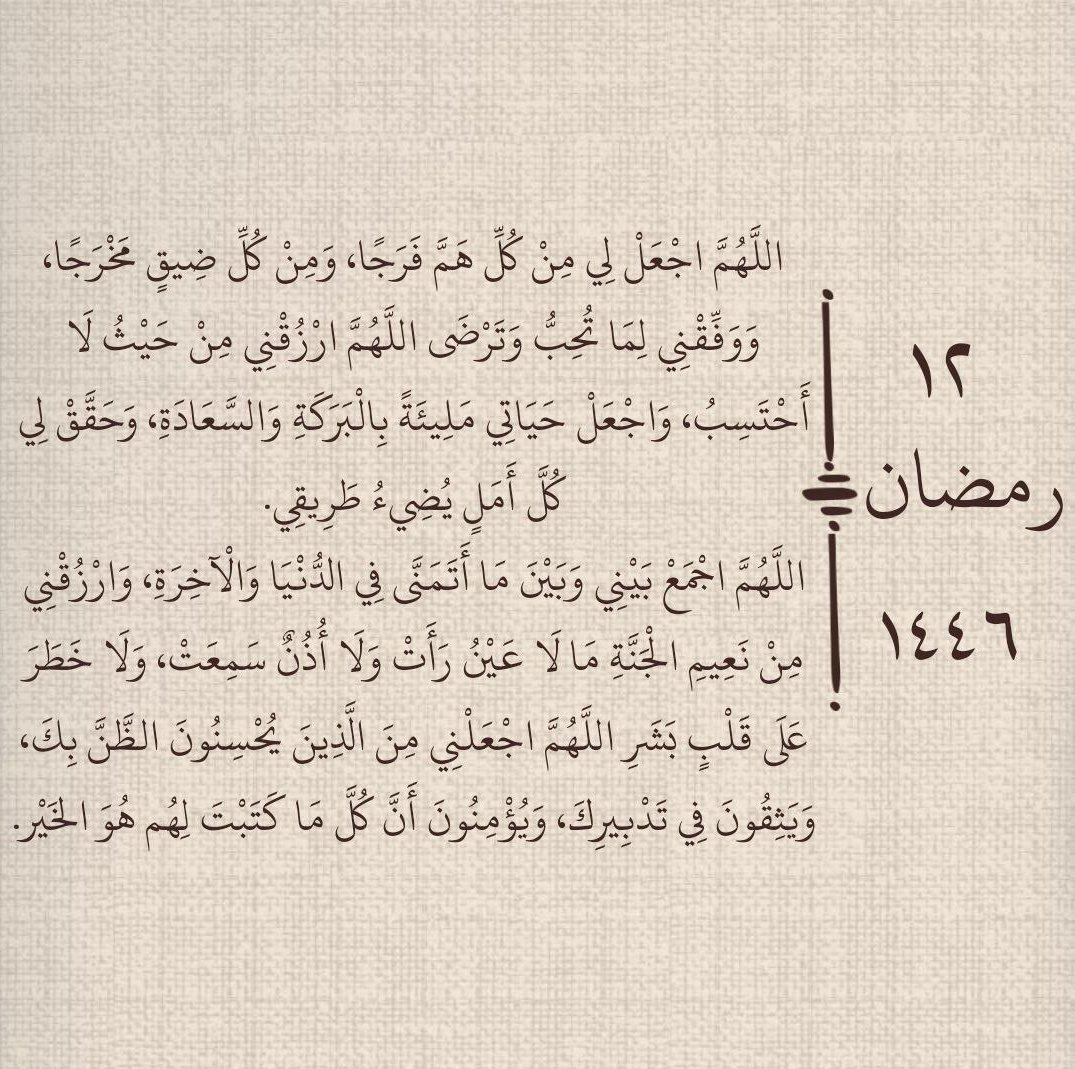 ١٢
رمضان
١٤٤٦
اللَّهُمَّ اجْعَلْ لِي مِنْ كُلِّ هَمَّ فَرَجًا، وَمِنْ كُلِّ ضِيقٍ مَخْرَجًا،
وَوَفِّقْنِي لِمَا تُحِبُّ وَتَرْضَى اللَّهُمَّ ارْزُقْنِي مِنْ حَيْثُ لَا
أَحْتَسِبُ، وَاجْعَلْ حَيَاتِي مَلِيئَةً بِالْبَرَكَةِ وَالسَّعَادَةِ، وَحَقَّقْ لِي
كُلَّ أَمَلٍ يُضِيءُ طَرِيقِي.
اللَّهُمَّ اجْمَعْ بَيْنِي وَبَيْنَ مَا أَتَمَنَّى فِي الدُّنْيَا وَالْآخِرَةِ، وَارْزُقْنِي
مِنْ نَعِيمِ الْجَنَّةِ مَا لَا عَيْنُ رَأَتْ وَلَا أُذُنٌ سَمِعَتْ، وَلَا خَطَرَ
عَلَى قَلْبٍ بَشَرِ اللَّهُمَّ اجْعَلْنِي مِنَ الَّذِينَ يُحْسِنُونَ الظَّنَّ بِكَ،
وَيَثِقُونَ فِي تَدْبِيرِكَ، وَيُؤْمِنُونَ أَنَّ كُلَّ مَا كَتَبْتَ لِهُم هُوَ الخَيْر.